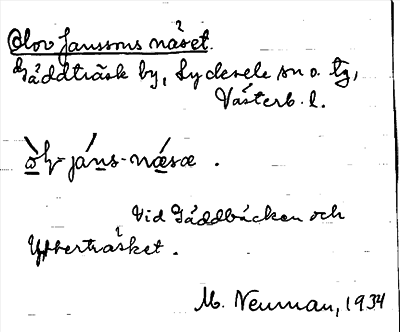 Olov Janssons näset.
Gäddträsk by, Lycksele sn o. tg,
Västerb. l.
-jáns-næsæ .
Vid Gäddbäcken och
Ytterträsket .
M. Neuman, 1934